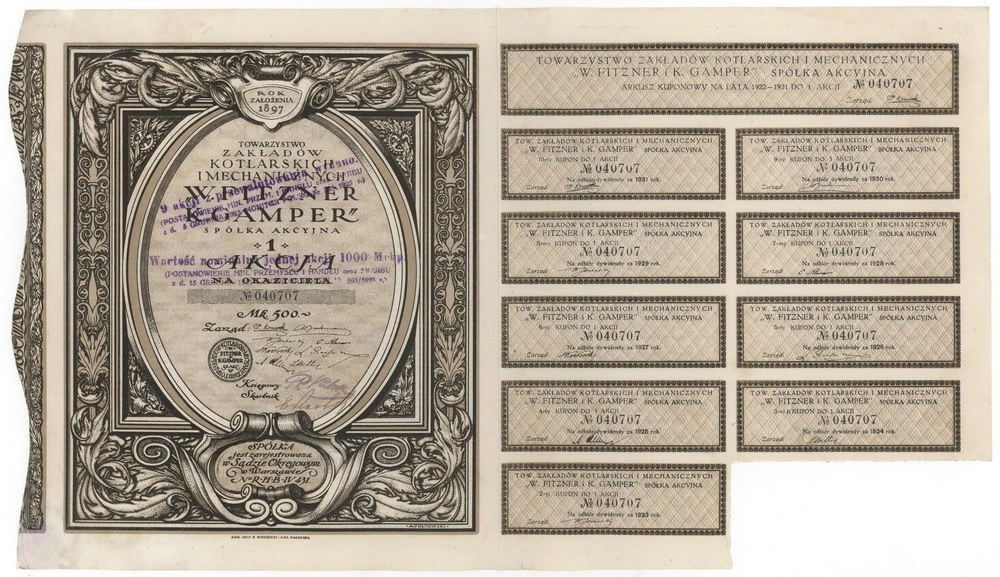 ROK
ZAŁOŻENIA
1897
TOWARZYSTWO
ZAKŁADÓW
KOTLARSKICH
I MECHANICZNYCH
W. FITZNER
K. GAMPER"
SPÓŁKA AKCYJNA
1
AKCYA
NA OKAZICIELA
№ 040707
Mk 500.~
Zarząd:
Księgowy
Skarbnik
9 akcji z przewalutowania
(POSTANOWIENIE MIN. PRZEM.
Wartość nominalna jednej akcji 1000 Mkp.
(POSTANOWIENIE MIN. PRZEMYSŁU I HANDLU oraz SKARBU
z d. 15
FITZNER
K. GAMPER
SPÓŁKA
jest zarejestrowana
w Sądzie Okręgowym
w Warszawie
№ R·H·B·IV 431.
TOWARZYSTWO ZAKŁADÓW KOTLARSKICH I MECHANICZNYCH
„W. FITZNER i K. GAMPER" SPÓŁKA AKCYJNA
ARKUSZ KUPONOWY NA LATA 1922–1931 DO 1 AKCJI № 040707
Zarząd:
TOW. ZAKŁADÓW KOTLARSKICH I MECHANICZNYCH
„W. FITZNER i K. GAMPER" SPÓŁKA AKCYJNA
10-ty KUPON DO 1 AKCJI
№ 040707
Na odbiór dywidendy za 1931 rok.
Zarząd:
TOW. ZAKŁADÓW KOTLARSKICH I MECHANICZNYCH
„W. FITZNER i K. GAMPER" SPÓŁKA AKCYJNA
9-ty KUPON DO 1 AKCJI
№ 040707
Na odbiór dywidendy za 1930 rok.
Zarząd:
TOW. ZAKŁADÓW KOTLARSKICH I MECHANICZNYCH
„W. FITZNER i K. GAMPER" SPÓŁKA AKCYJNA
8-my KUPON DO 1 AKCJI
№ 040707
Na odbiór dywidendy za 1929 rok.
Zarząd:
TOW. ZAKŁADÓW KOTLARSKICH I MECHANICZNYCH
„W. FITZNER i K. GAMPER" SPÓŁKA AKCYJNA
7-my KUPON DO 1 AKCJI
№ 040707
Na odbiór dywidendy za 1928 rok.
Zarząd:
TOW. ZAKŁADÓW KOTLARSKICH I MECHANICZNYCH
„W. FITZNER i K. GAMPER" SPÓŁKA AKCYJNA
6-ty KUPON DO 1 AKCJI
№ 040707
Na odbiór dywidendy za 1927 rok.
Zarząd:
TOW. ZAKŁADÓW KOTLARSKICH I MECHANICZNYCH
„W. FITZNER i K. GAMPER" SPÓŁKA AKCYJNA
5-ty KUPON DO 1 AKCJI
№ 040707
Na odbiór dywidendy za 1926 rok.
Zarząd:
TOW. ZAKŁADÓW KOTLARSKICH I MECHANICZNYCH
„W. FITZNER i K. GAMPER" SPÓŁKA AKCYJNA
4-ty KUPON DO 1 AKCJI
№ 040707
Na odbiór dywidendy za 1925 rok.
Zarząd:
TOW. ZAKŁADÓW KOTLARSKICH I MECHANICZNYCH
„W. FITZNER i K. GAMPER" SPÓŁKA AKCYJNA
3-ci KUPON DO 1 AKCJI
№ 040707
Na odbiór dywidendy za 1924 rok.
Zarząd:
TOW. ZAKŁADÓW KOTLARSKICH I MECHANICZNYCH
„W. FITZNER i K. GAMPER" SPÓŁKA AKCYJNA
2-gi KUPON DO 1 AKCJI
№ 040707
Na odbiór dywidendy za 1923 rok.
Zarząd: